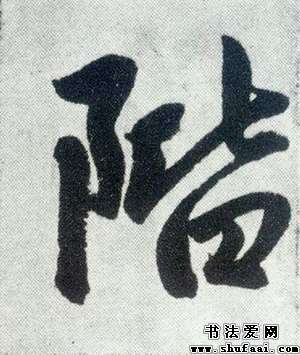 階
书法爱网
www.shufaai.com